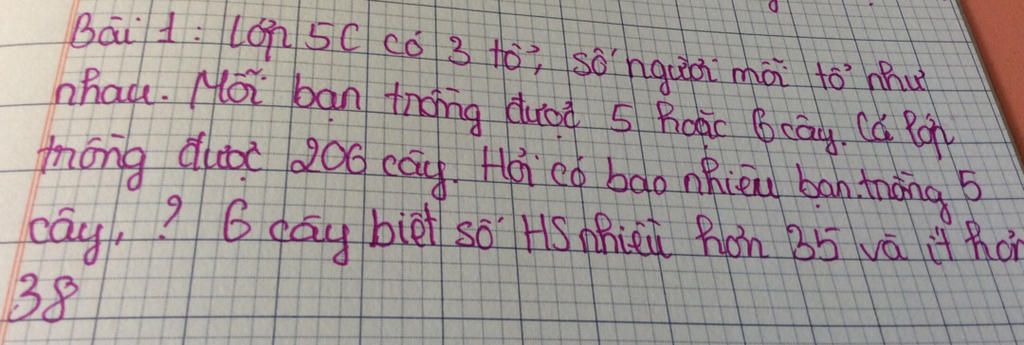 Bài 1: Lớp 5C có 3 tổ, số người mỗi tổ như
nhau. Mỗi bạn trồng được 5 hoặc 6 cây. Cả lớp
trồng được 206 cây. Hỏi có bao nhiêu bạn trồng 5
cây, ? 6 cây biết số HS nhiều hơn 35 và ít hơn
38